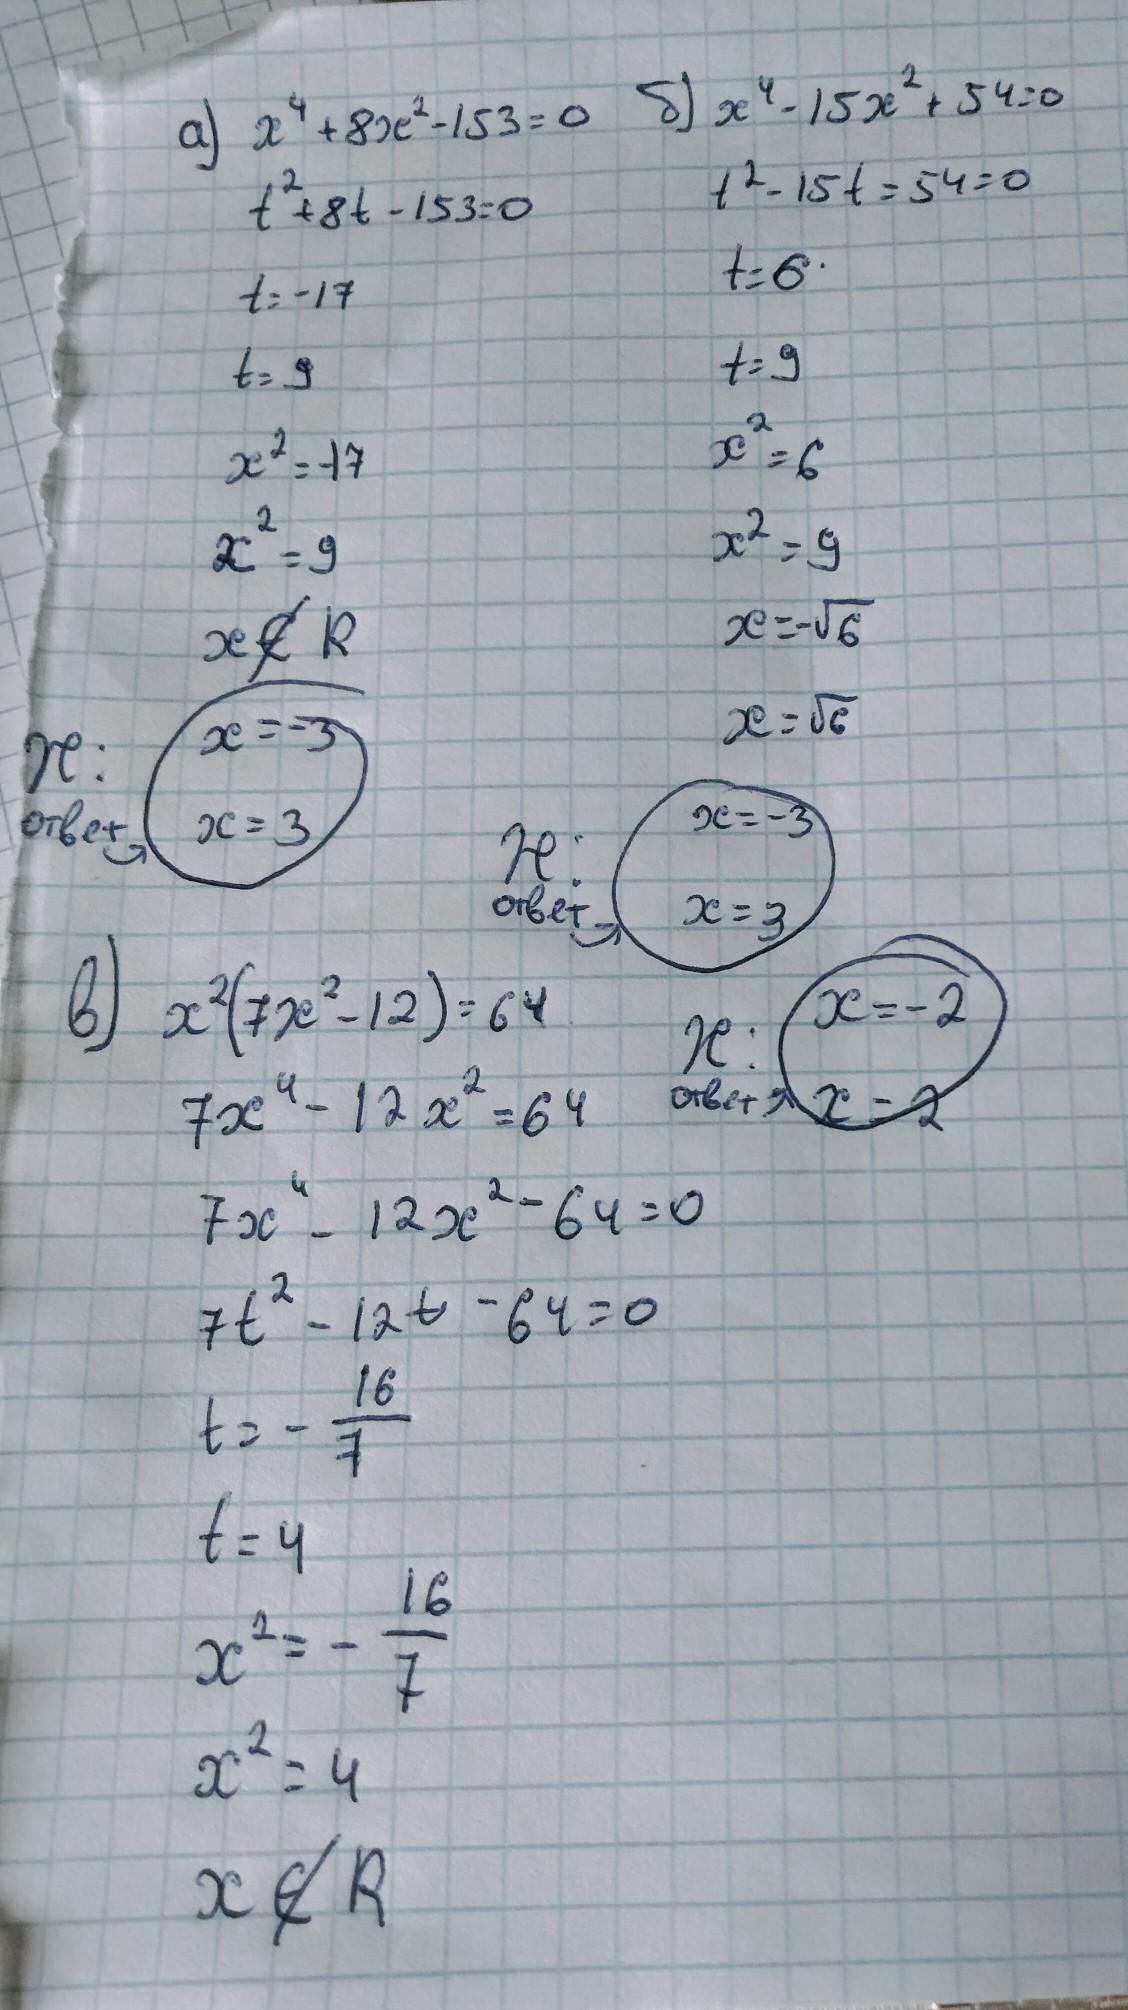 а) x⁴+8x²-153=0
t²+8t-153=0
t=-17
t=9
x²=-17
x²=9
x∉R
x=-3
x=3
ответ
б) x⁴-15x²+54=0
t²-15t=54=0
t=6
t=9
x²=6
x²=9
x=-√6
x=√6
x=-3
x=3
ответ
в) x²(7x²-12)=64
7x⁴-12x²=64
7x⁴-12x²-64=0
7t²-12t-64=0
t=-16/7
t=4
x²=-16/7
x²=4
x∉R
x=-2
x=2
ответ